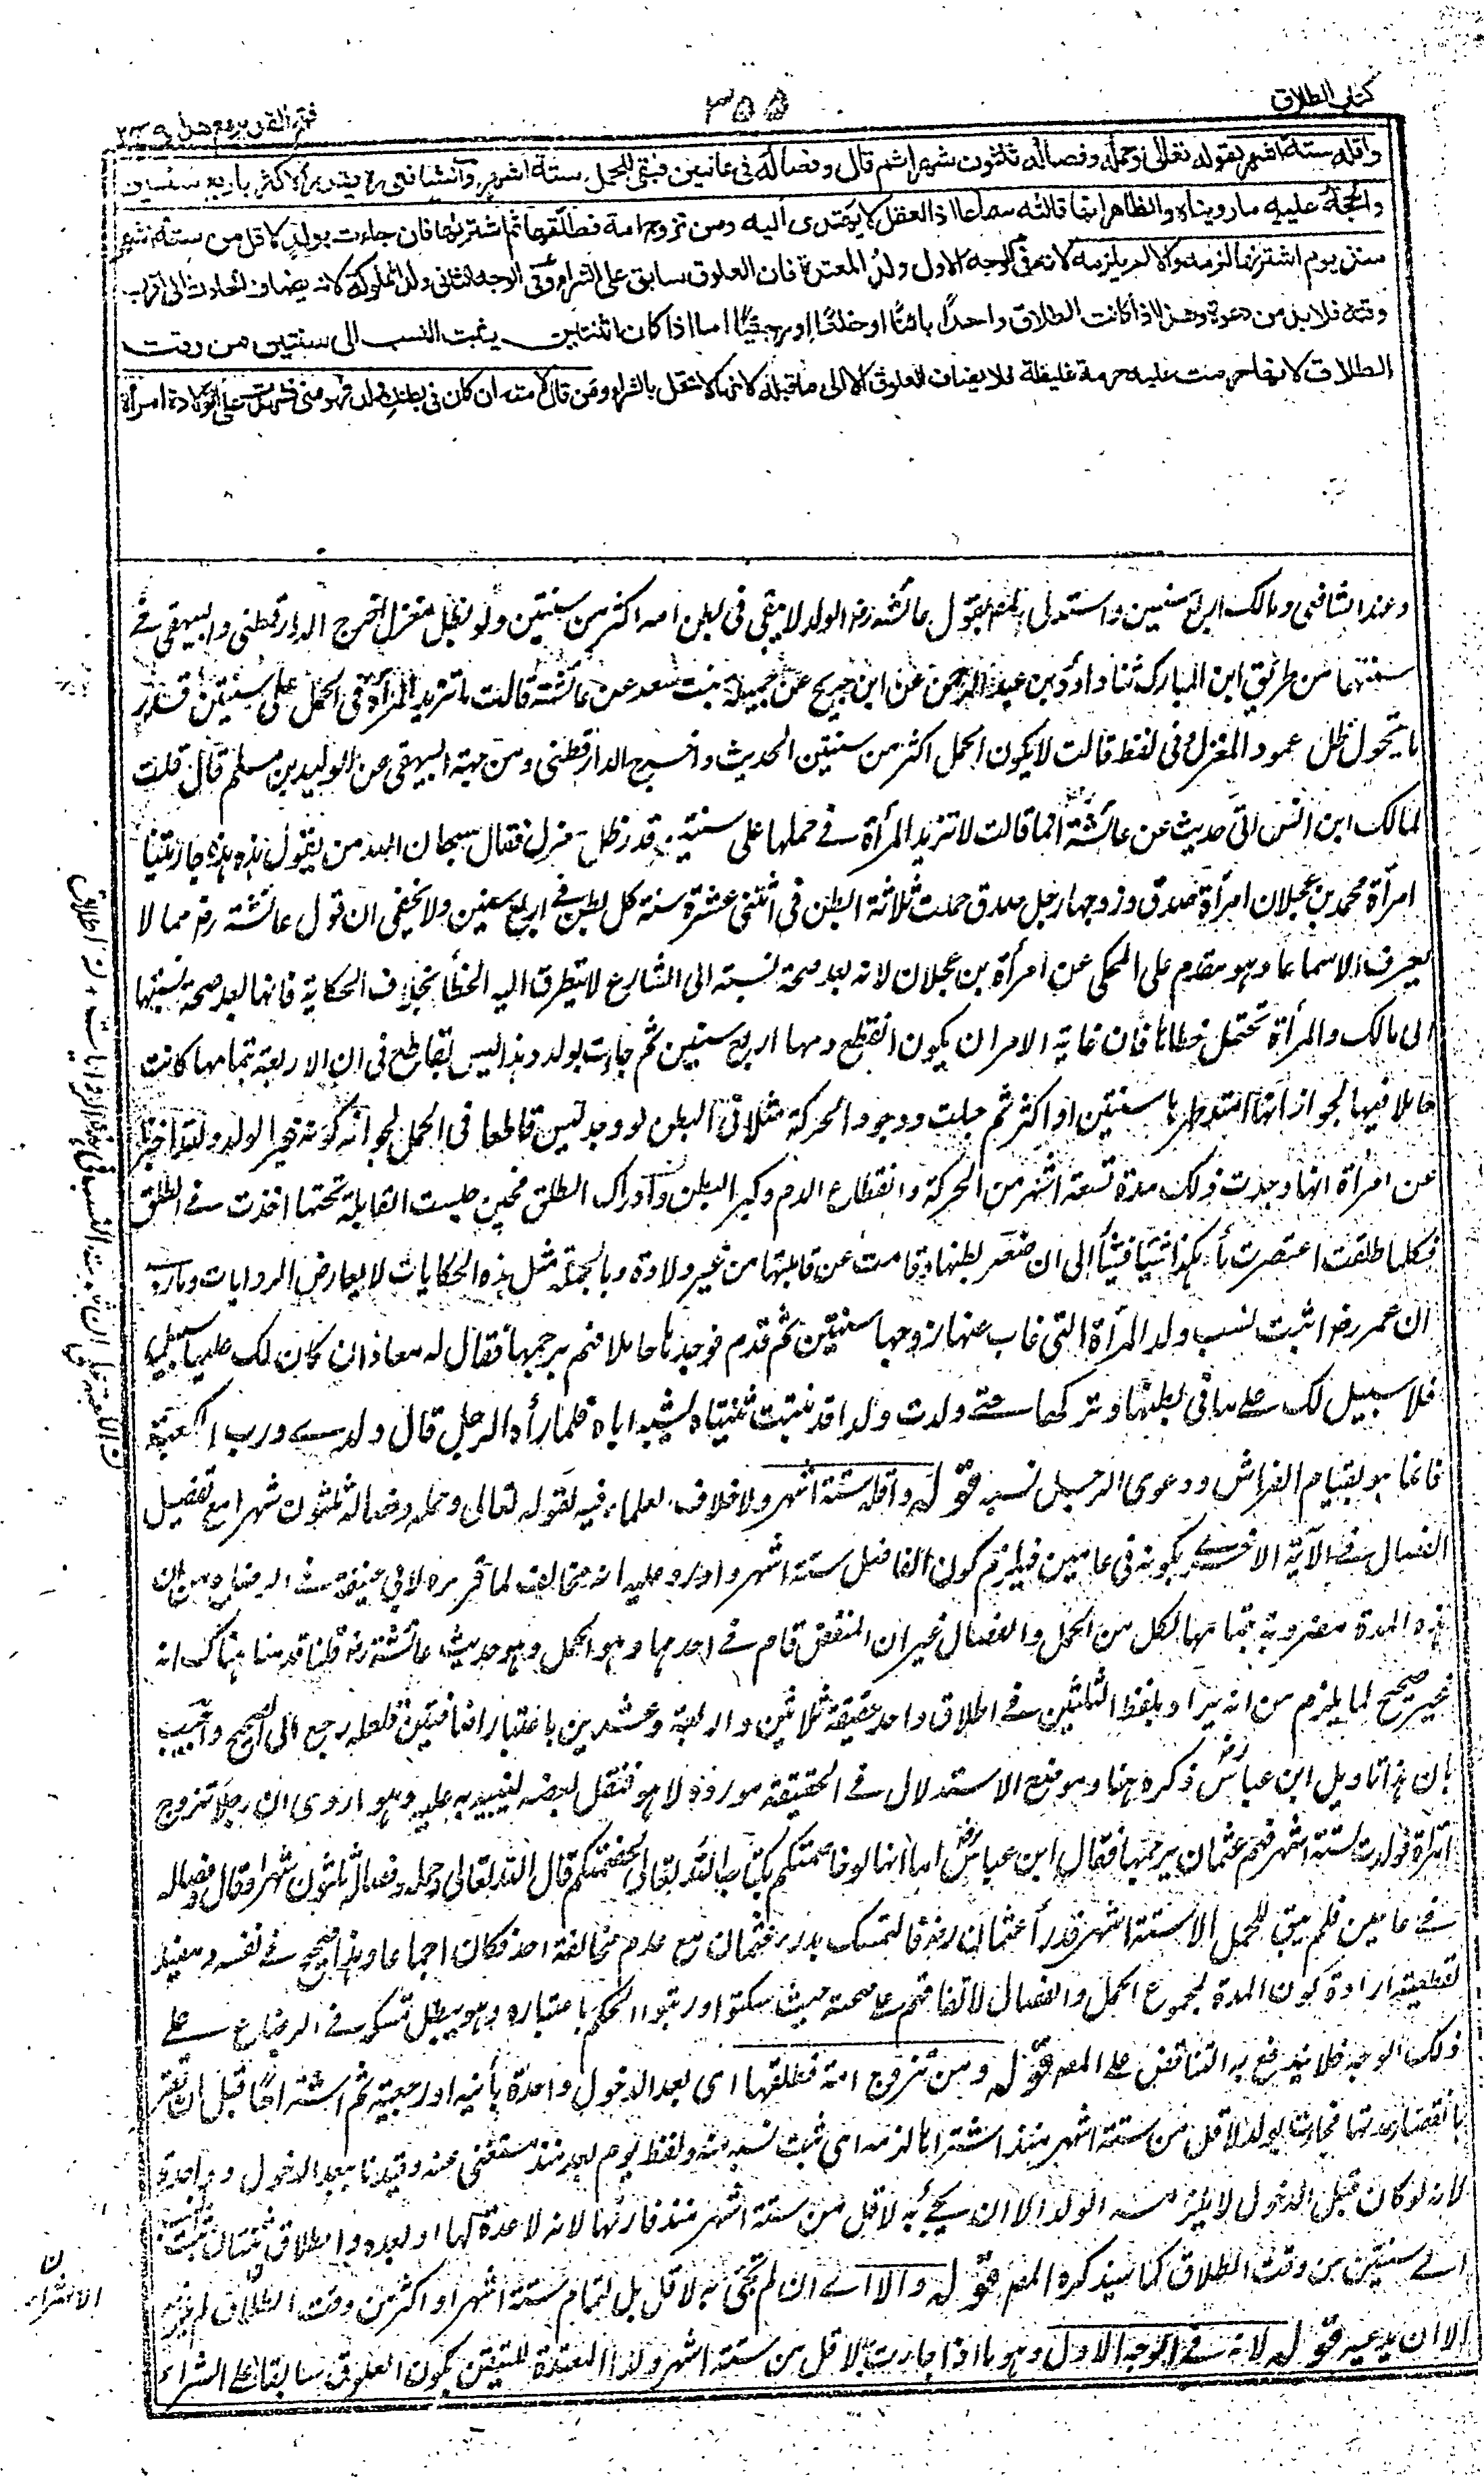 كتاب الطلاق
٣٥٥
فتح القدير مع هداية ج٢
وأقله ستة أشهر لقوله تعالى وحمله وفصاله ثلثون شهرا ثم قال وفصاله في عامين فبقي للحمل ستة اشهر والشافعي ره يقدر الاكثر باربع سنين
والحجة عليه ما رويناه والظاهر انها قالته سماعا اذ العقل لا يهتدى اليه ومن تزوج امة فطلقها ثم اشتريها فان جاءت بولد لاقل من ستة اشهر
منذ يوم اشتريها لزمه والا لم يلزمه لانه في الوجه الاول ولد المعتدة فان العلوق سابق على الشراء وفي الوجه الثاني ولد المملوكة لانه يضاف الحادث الى اقرب
وقته فلا بد من دعوة وهذا اذا كانت الطلاق واحدا بائنا او خلعا او رجعيا اما اذا كان اثنتين يثبت النسب الى سنتين من وقت
الطلاق لانها حرمت عليه حرمة غليظة فلا يضاف العلوق الا الى ما قبله لانها لا تحل بالشراء ومن قال لامته ان كان في بطنك ولد فهو مني فشهدت على الولادة امرأة
وعند الشافعي ومالك اربع سنين واستدل المصـ بقول عائشة رضـ الولد لا يبقى في بطن امه اكثر من سنتين ولو بظل مغزل اخرج الدارقطني والبيهقي في
سننهما من طريق ابن المبارك ثنا داؤد بن عبد الرحمن عن ابن جريج عن جميلة بنت سعد عن عائشة قالت ما تزيد المرأة في الحمل على سنتين قدر
ما يتحول ظل عمود المغزل وفي لفظ قالت لا يكون الحمل اكثر من سنتين الحديث واخرج الدارقطني ومن جهته البيهقي عن الوليد بن مسلم قال قلت
لمالك ابن انس اني حديث عن عائشة انها قالت لا تزيد المرأة في حملها على سنتين قدر ظل مغزل فقال سبحان الله من يقول هذه هذه جارتنا
امرأة محمد بن عجلان امرأة صدق وزوجها رجل صدق حملت ثلاثة ابطن في اثنتي عشرة سنة كل بطن في اربع سنين ولا يخفى ان قول عائشة رضـ مما لا
يعرف الا سماعا وهو مقدم على المحكى عن امرأة بن عجلان لانه بعد صحة نسبته الى الشارع لا يتطرق اليه الخطأ بخلاف الحكاية فانها بعد صحة نسبتها
الى مالك والمرأة تحتمل خطأها فان غاية الامر ان يكون انقطع دمها اربع سنين ثم جاءت بولد وهذا ليس بقاطع في ان الاربعة بتمامها كانت
حاملا فيها لجواز انها امتد طهرها سنتين او اكثر ثم حبلت ووجود الحركة مثلا في البطن لو وجد ليس قاطعا في الحمل لجوازه كونه غير الولد ولقد اخبرنا
عن امرأة انها وجدت ذلك مدة تسعة اشهر من الحركة وانقطاع الدم وكبر البطن وادراك الطلق فحين جلست القابلة تحتها اخذت في الطلق
فكلما طلقت اعتصرت ماء هكذا شيئا فشيئا الى ان ضمر بطنها وقامت عن قابلتها من غير ولادة وبالجملة مثل هذه الحكايات لا يعارض الروايات وما روى
ان عمر رضـ اثبت نسب ولد المرأة التي غاب عنها زوجها سنتين ثم قدم فوجدها حاملا فهم برجمها فقال له معاذ ان كان لك عليها سبيل
فلا سبيل لك على ما في بطنها وتركها حتى ولدت ولدا قد نبتت ثنيتاه يشبه اباه فلما رأه الرجل قال ولدي ورب الكعبة
فانما هو بقيام الفراش ودعوى الرجل نسبه قوله واقله ستة اشهر ولا خلاف للعلماء فيه لقوله تعالى وحمله وفصاله ثلثون شهرا مع تفصيل
الفصال في الآية الاخرى بكونه في عامين فيلزم كون الفاضل ستة اشهر واورد عليه انه مخالف لما قرره لابي حنيفة في الرضاع من ان
هذه المدة مضروبة بتمامها لكل من الحمل والفصال غير ان المنقص قام في احدهما وهو الحمل وهو حديث عائشة رضـ قلنا قدمنا هناك انه
غير صحيح لما يلزم من انه يراد بلفظ الثلثين في اطلاق واحد حقيقة ثلاثين واربعة وعشرين باعتبار اضافتين فلعله رجع الى الصحيح واجيب
بان هذا تاويل ابن عباس رضـ ذكره هنا وموقع الاستدلال في الحقيقة مورده لا هو فنقل بعضه لينبه به عليه وهو ما روى ان رجلا تزوج
امرأة فولدت لستة اشهر فهم عثمان برجمها فقال ابن عباس رضـ اما انها لو خاصمتكم بكتاب الله تعالى لخصمتكم قال الله تعالى وحمله وفصاله ثلثون شهرا وقال وفصاله
في عامين فلم يبق للحمل الا ستة اشهر فدرأ عثمان رضـ فالتمسك بدرء عثمان مع عدم مخالفة احد فكان اجماعا وهذا صحيح في نفسه ومفيد
لقطعية ارادة كون المدة لمجموع الحمل والفصال لاتفاقهم على صحته حيث سكتوا ورتبوا الحكم باعتباره وهو يبطل تمسكه في الرضاع على
ذلك الوجه فلا يندفع به التناقض على المصـ قوله ومن تزوج امة فطلقها اى بعد الدخول واحدة بائنة او رجعية ثم اشتراها قبل ان تقر
بانقضاء عدتها فجاءت بولد لاقل من ستة اشهر منذ اشتراها لزمه اى ثبت نسبه منه ولفظ يوم بعد منذ مستغنى عنه وقيدنا ببعد الدخول وواحدة
لانه لو كان قبل الدخول لا يلزمه الولد الا ان يجئ به لاقل من ستة اشهر منذ فارقها لانه لا عدة لها او بعده والطلاق ثنتان ثبت النسب
الى سنتين من وقت الطلاق كما سيذكره المصـ قوله والا اى ان لم تجئ به لاقل بل لتمام ستة اشهر او اكثر من وقت الطلاق لم يلزمه
الا ان يدعيه قوله لانه في الوجه الاول وهو ما اذا جاءت به لاقل من ستة اشهر ولد المعتدة للتيقن بكون العلوق سابقا على الشراء
ن
الاشتراء